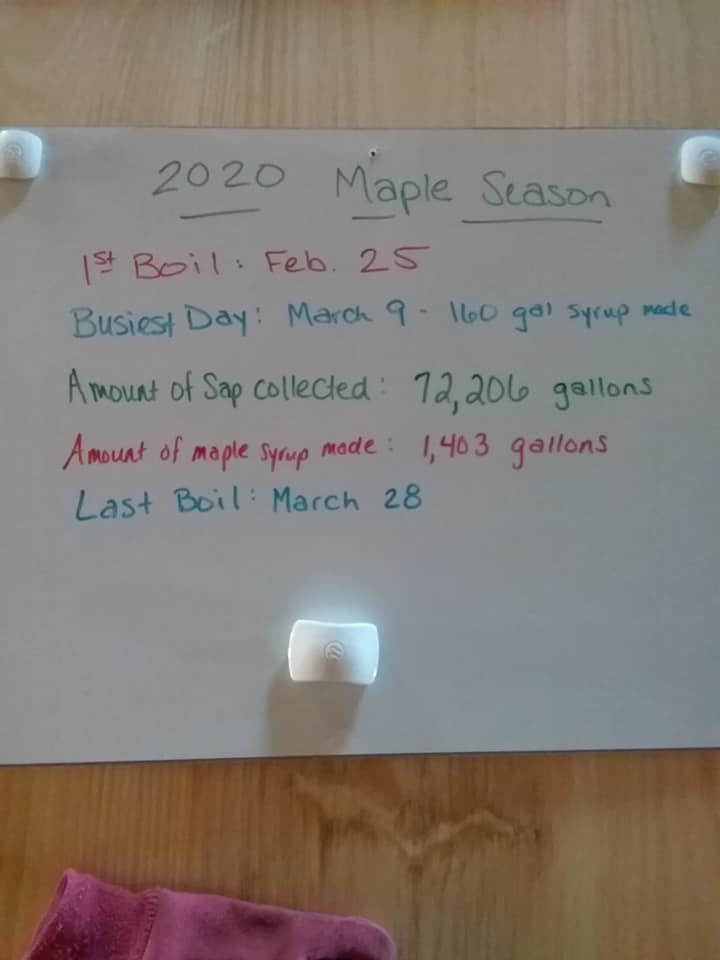 2020 Maple Season
1st Boil: Feb. 25
Busiest Day: March 9 - 160 gal syrup made
Amount of Sap collected: 72,206 gallons
Amount of maple syrup made: 1,403 gallons
Last Boil: March 28